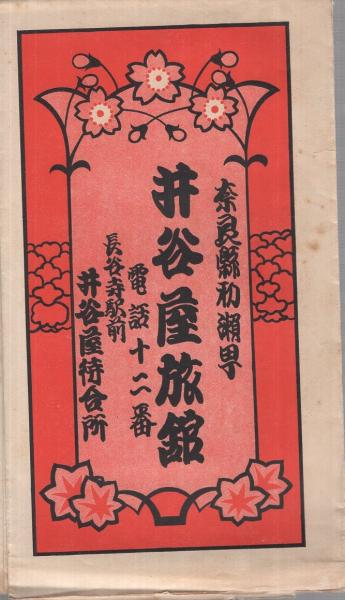 奈良縣初瀬町
井谷屋旅館
電話十二番
長谷寺駅前
井谷屋待合所